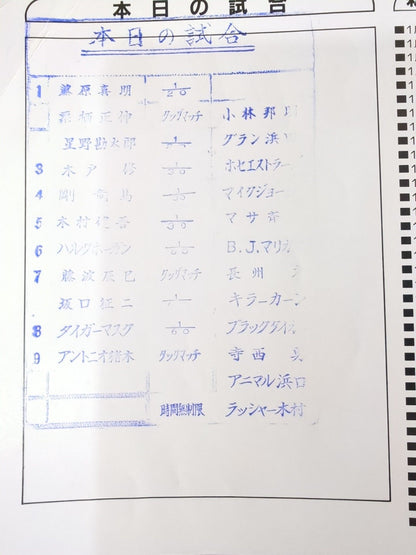 本日の試合
本日の試合
1 藤原喜明 1/20
栗栖正伸 タッグマッチ 小林邦
星野勘太郎 グラン浜
3 木戸修 1/30 ホセエストラ
4 剛竜馬 1/30 マイクジョー
5 木村健吾 1/30 マサ斉
6 ハルクホーガン 1/30 B.J.マリガ
7 藤波辰巳 タッグマッチ 長州
坂口征二 1 キラーカーン
8 タイガーマスク 1/60 ブラックタイガ
9 アントニオ猪木 タッグマッチ 寺西
アニマル浜口
時間無制限 ラッシャー木村